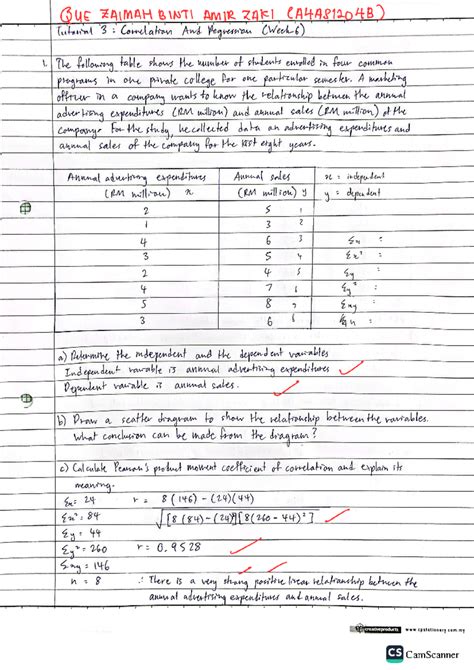 QUE ZAIMAH BINTI AMIR ZAKI (A4A81204B)
Tutorial 3 : Correlation And Regression (Week 6)
1. The following table shows the number of students enrolled in four common
programs in one private college for one particular semester. A marketing
officer in a company wants to know the relationship between the annual
advertising expenditures (RM million) and annual sales (RM million) of the
company. For the study, he collected data on advertising expenditures and
annual sales of the company for the last eight years.
Annual advertising expenditures Annual sales x = independent
(RM million) x (RM million) y y = dependent
2 5 1
1 3 2
4 6 3 Σx =
3 5 4 Σx² =
2 4 5 Σy =
4 7 6 Σy² =
5 8 7 Σxy =
3 6 8
a) Determine the independent and the dependent variables
Independent variable is annual advertising expenditures
Dependent variable is annual sales.
b) Draw a scatter diagram to show the relationship between the variables.
What conclusion can be made from the diagram?
c) Calculate Pearson's product moment coefficient of correlation and explain its
meaning.
Σx = 24 r = 8(146) - (24)(44)
Σx² = 84 √[8(84) - (24)²][8(260 - 44)²]
Σy = 44
Σy² = 260 r = 0.9528
Σxy = 146
n = 8 ∴ There is a very strong positive linear relationship between the
annual advertising expenditures and annual sales.
creativeproducts www.cpstationery.com.my
CS CamScanner